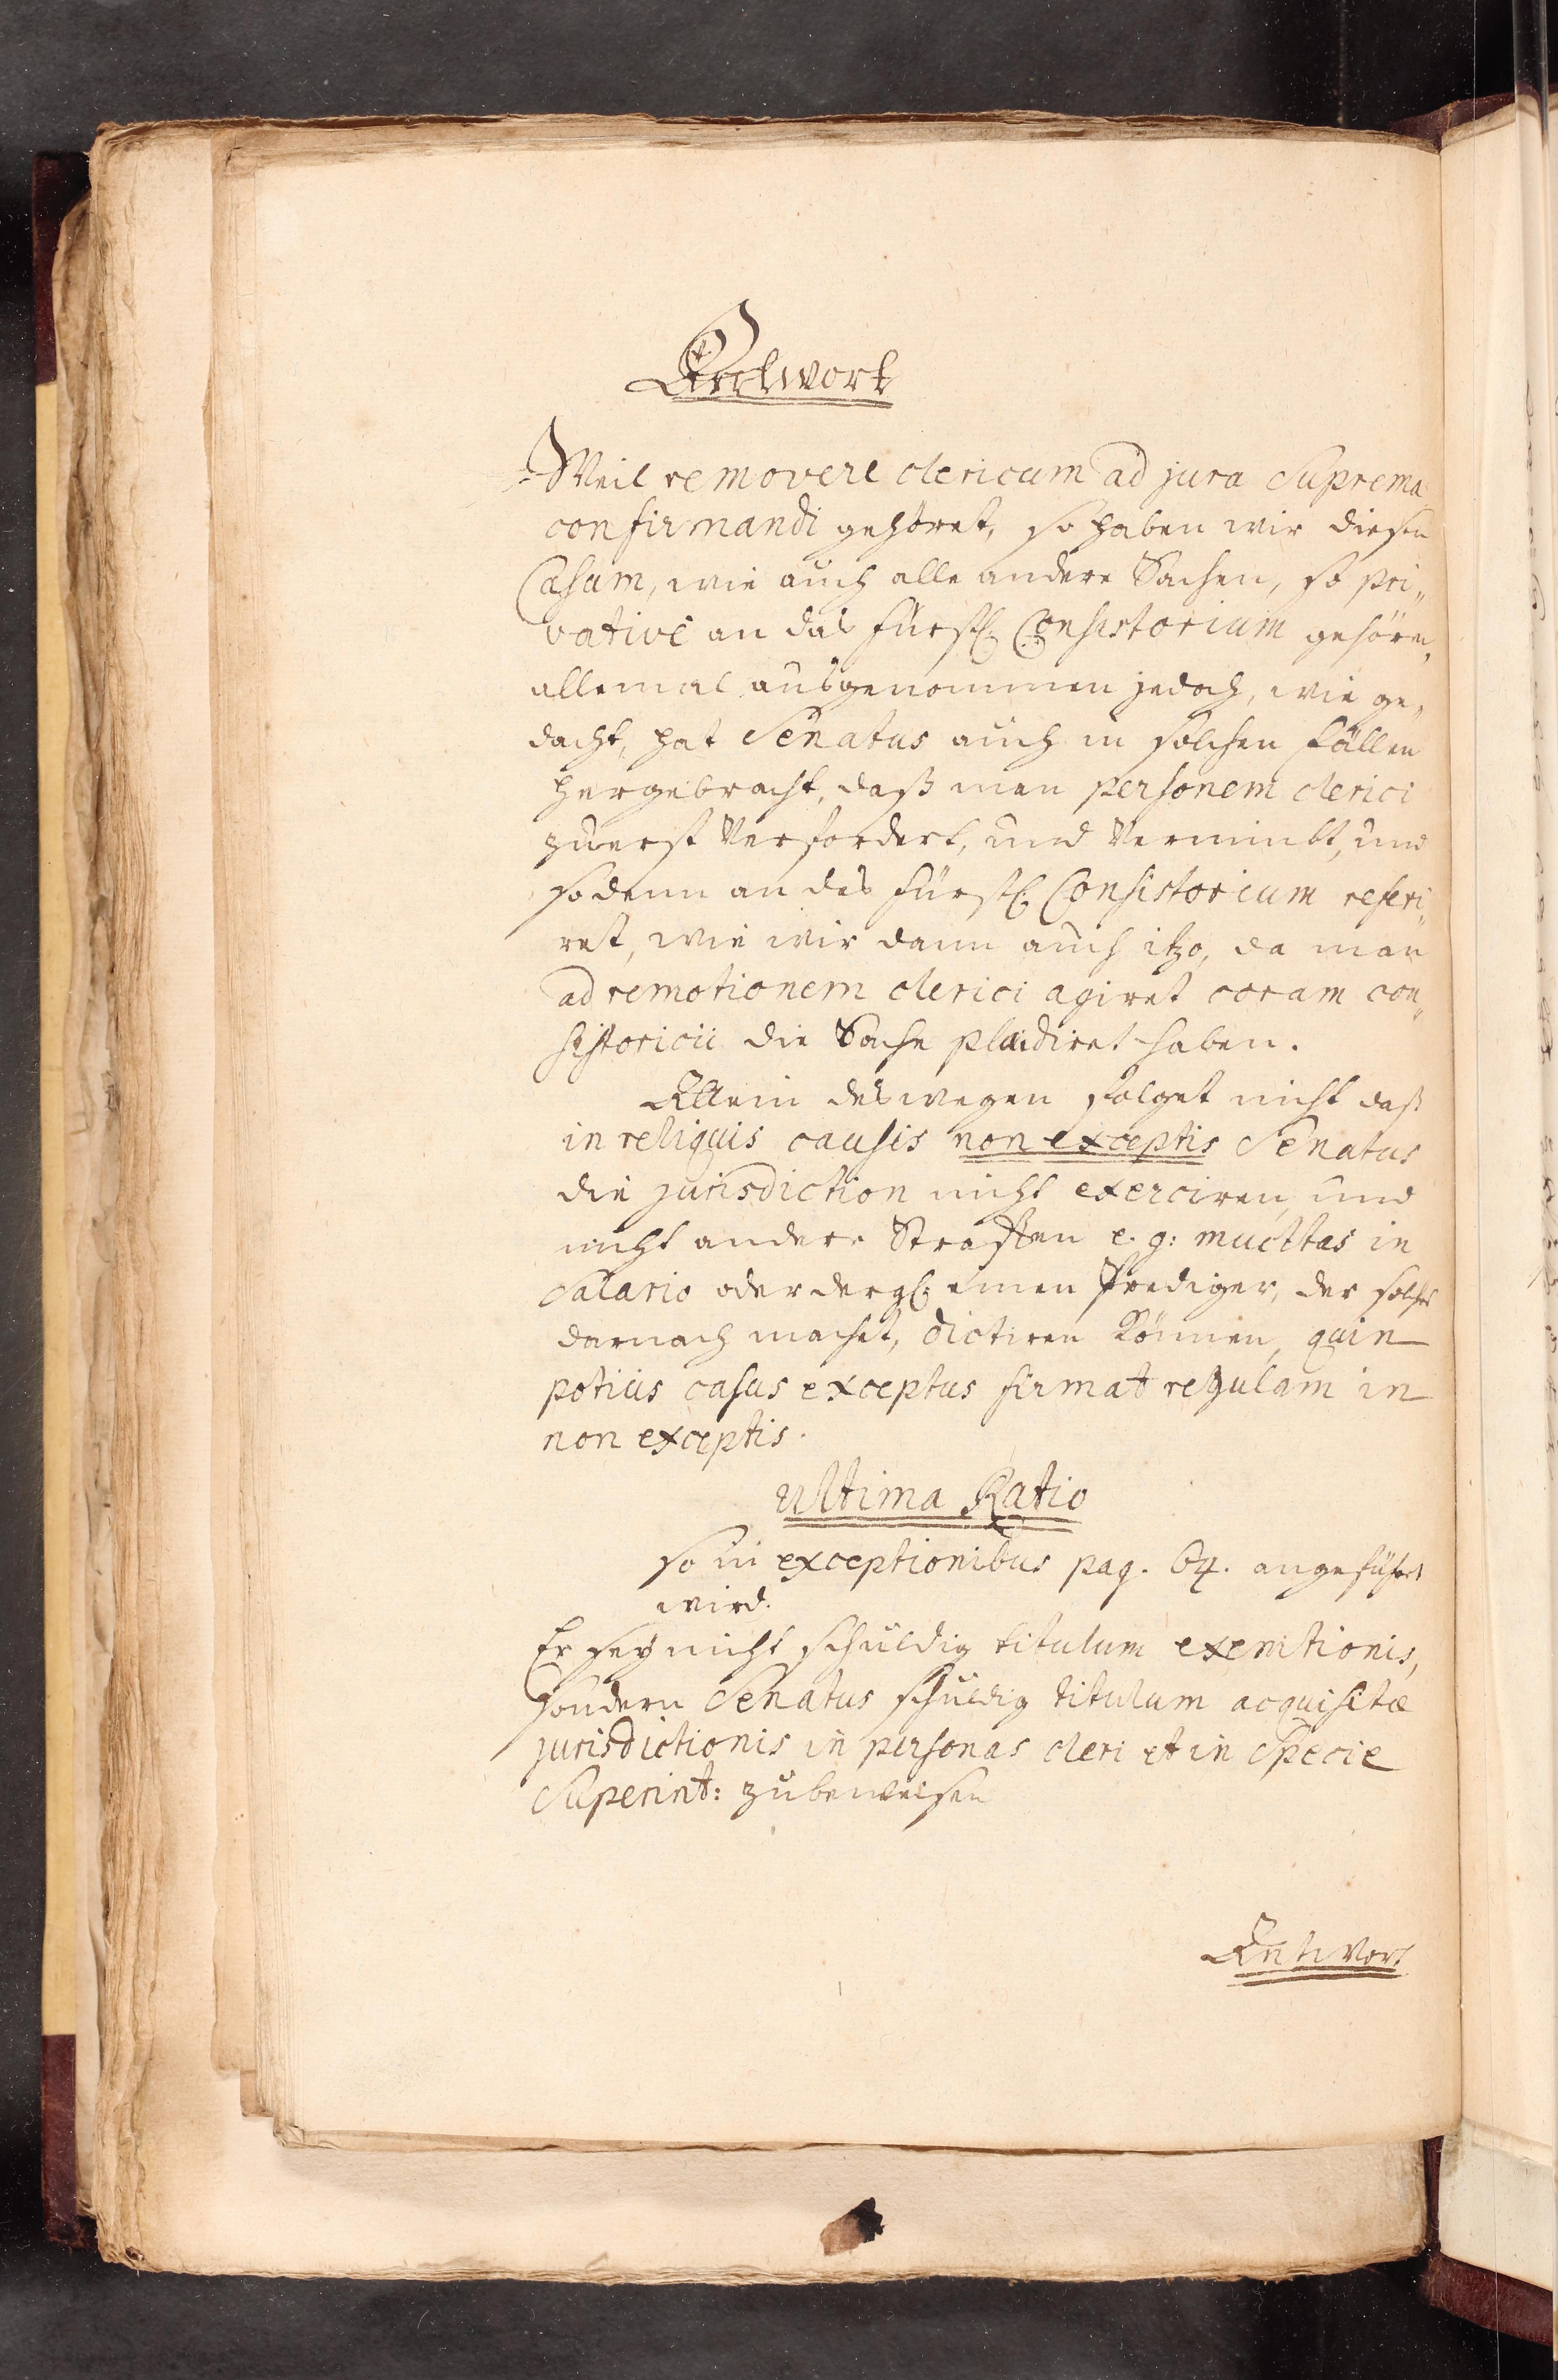 Antwort
Weil removere clericum ad jura Suprema
confirmandi gehöret, so haben wir diesen
Casum, wie auch alle andere Sachen, so pri„
vative an das Fürstl. Consistorium gehören,
allemal ausgenommen jedoch, wie ge„
dacht, hat Senatus auch in solchen Fällen
hergebracht, daß man personem clerici
zuerst Verfordert, und Vernimbt, und
sodann an das Fürstl. Consistorium referi„
ret, wie wir dann auch itzo, da man
ad remotionem clerici agiret coram con„
sistoricii die Sache plaidiret haben.
Allein deswegen folget nicht daß
in reliquis causis non exceptis Senatus
die jurisdiction nicht exerciren, und
nicht andere Straffen e. g: mucttas in
Salario oder dergl. einen Prediger, der solches
darnach machet, dictiren Können, quin
potius casus exceptus firmat regulam in
non exceptis.
Ultima Ratio
so in exceptionibus pag. 64. angeführt
wird.
Er sey nicht schuldig titulum exemtionis,
sondern Senatus schuldig titulum acquisitæ
jurisdictionis in personas cleri et in Specie
Superint: zubeweisen
Antwort